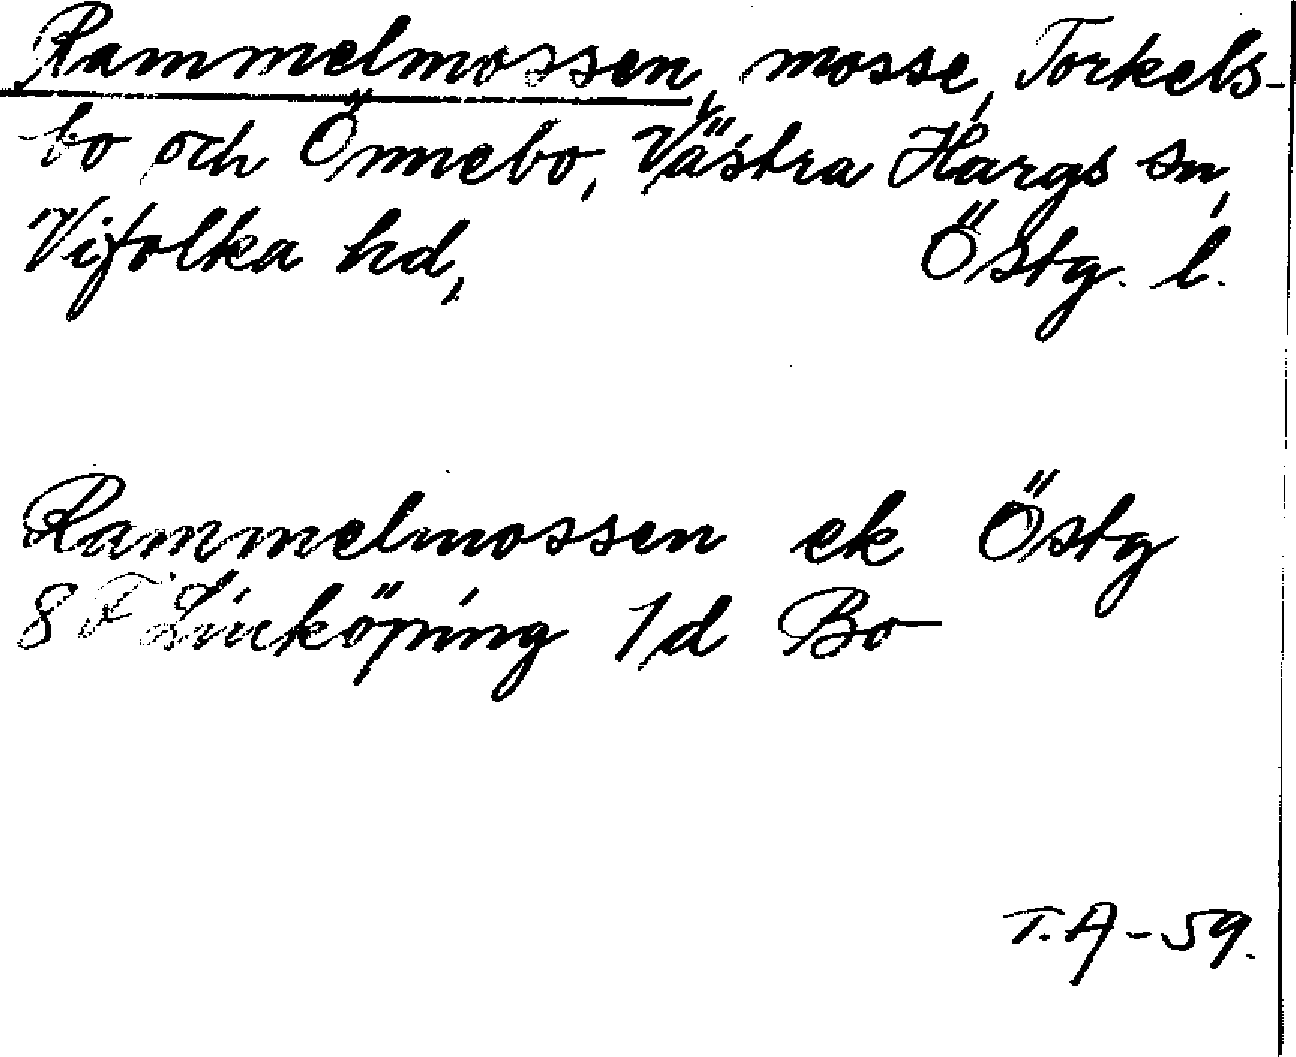 Rammelmossen, mosse, Torkels-
bo och Önnebo, Västra Hargs sn,
Vifolka hd, Östg. l.
Rammelmossen ek Östg
8 F Linköping 1d Bo
T.A-59.